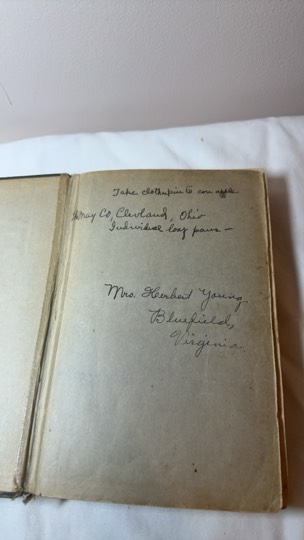 Take clothspin to core apple
May Co, Clevland, Ohio
Individual loaf pans –
Mrs. Herbert Young
Bluefield,
Virginia.